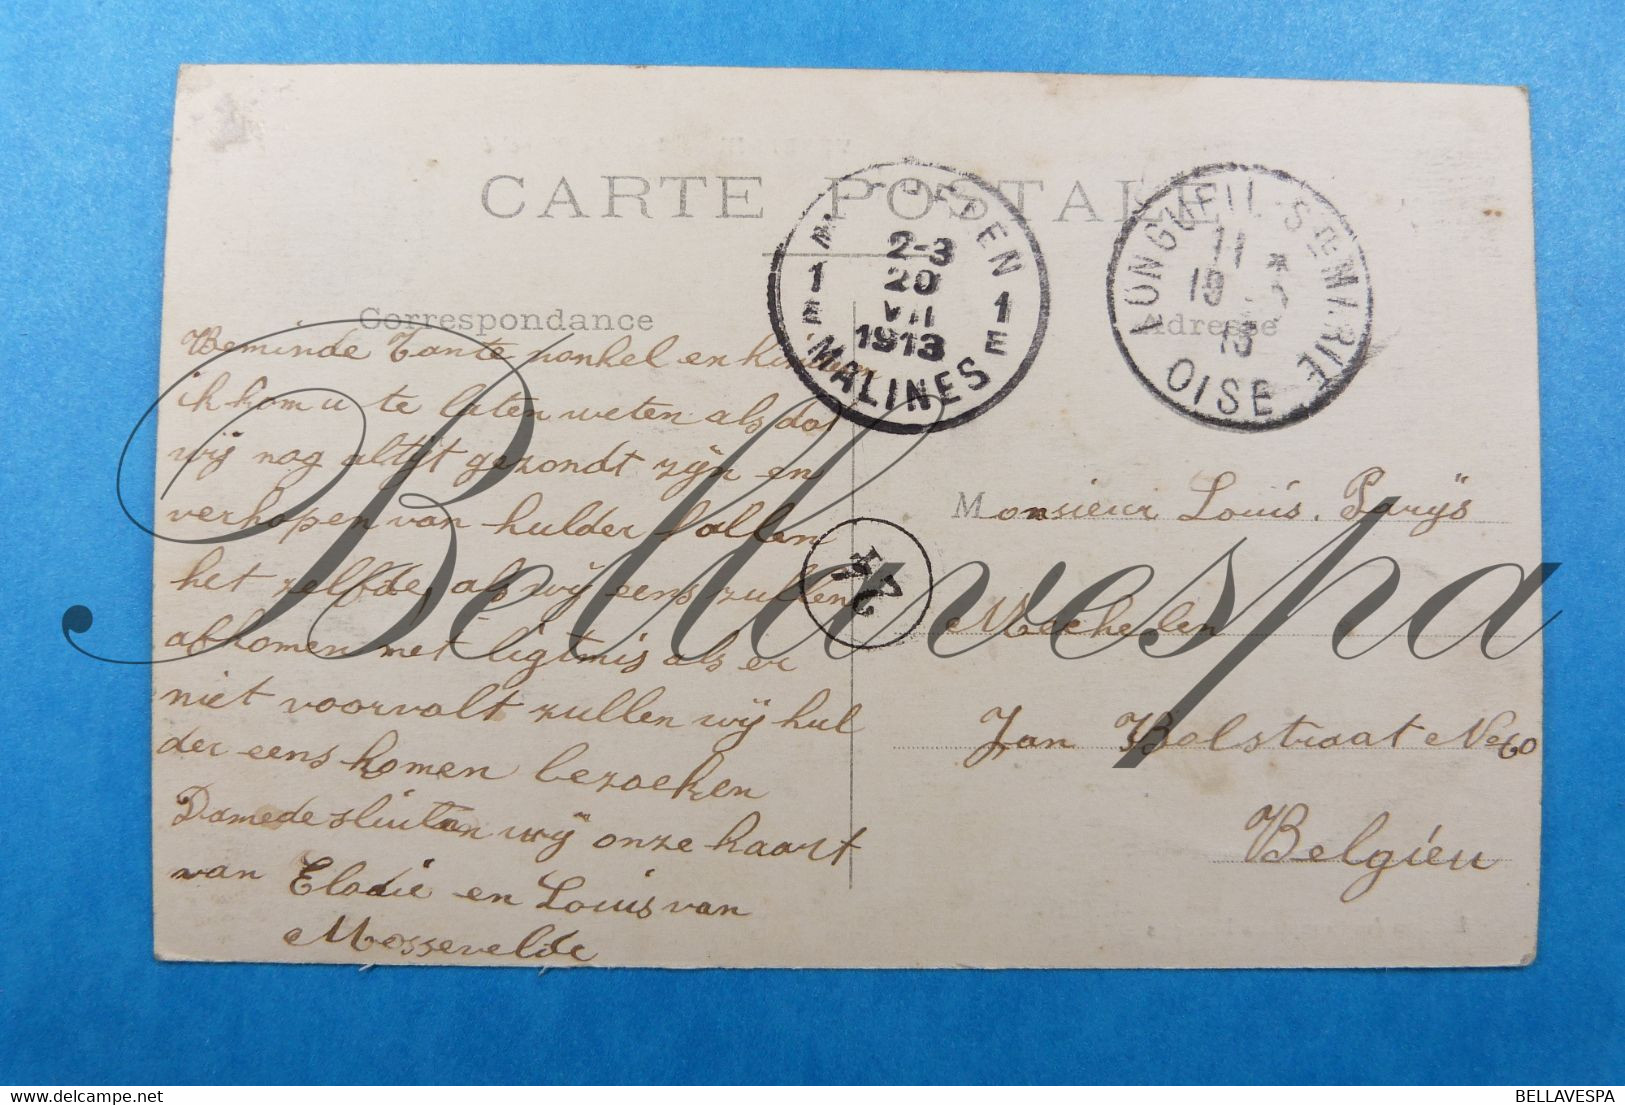 CARTE POSTALE
Correspondance
Adresse
MECHELEN
1 2-3 1
20
VII
1913
MALINES
LONGUEIL-STE MARIE
11 *
19
13
OISE
Beminde Tante nonkel en kinders
ik kom u te laten weten als dat
wij nog altijt gezondt zijn en
verhopen van hulder
het zelfde, als wij eens zullen
afkomen met als er
niet voorvolt zullen wij hul
der eens komen bezoeken
Damede sluiten wij onze kaart
van Elodie en Louis van
Mossevelde
Monsieur Louis. Parijs
Mechelen
Jan Bolstraat No 60
Belgieu
Bellavespa
BELLAVESPA